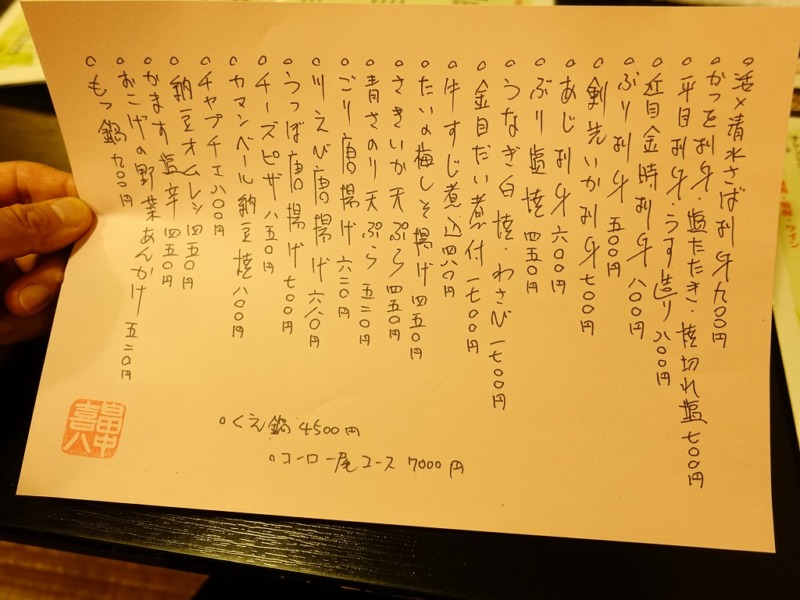 ○活〆清水さば刺身九〇〇円
○かつを刺身・塩たたき・焼切れ塩七〇〇円
○平目刺身・うす造り八〇〇円
○近目金時刺身八〇〇円
○ぶり刺身五〇〇円
○剣先いか刺身七〇〇円
○あじ刺身六〇〇円
○ぶり塩焼四五〇円
○うなぎ白焼・わさび一七〇〇円
○金目だい煮付一七〇〇円
○牛すじ煮込四八〇円
○たいの梅しそ揚げ四五〇円
○さきいか天ぷら四五〇円
○青さのり天ぷら五二〇円
○ごり唐揚げ六二〇円
○川えび唐揚げ六八〇円
○うつぼ唐揚げ七〇〇円
○チーズピザ八五〇円
○カマンベール納豆焼八〇〇円
○チャプチェ八〇〇円
○納豆オムレツ四五〇円
○かます塩辛四五〇円
○おこげの野菜あんかけ五二〇円
○もつ鍋九〇〇円
○くえ鍋 4500円
○コーロー尾コース 7000円
畠中
喜八